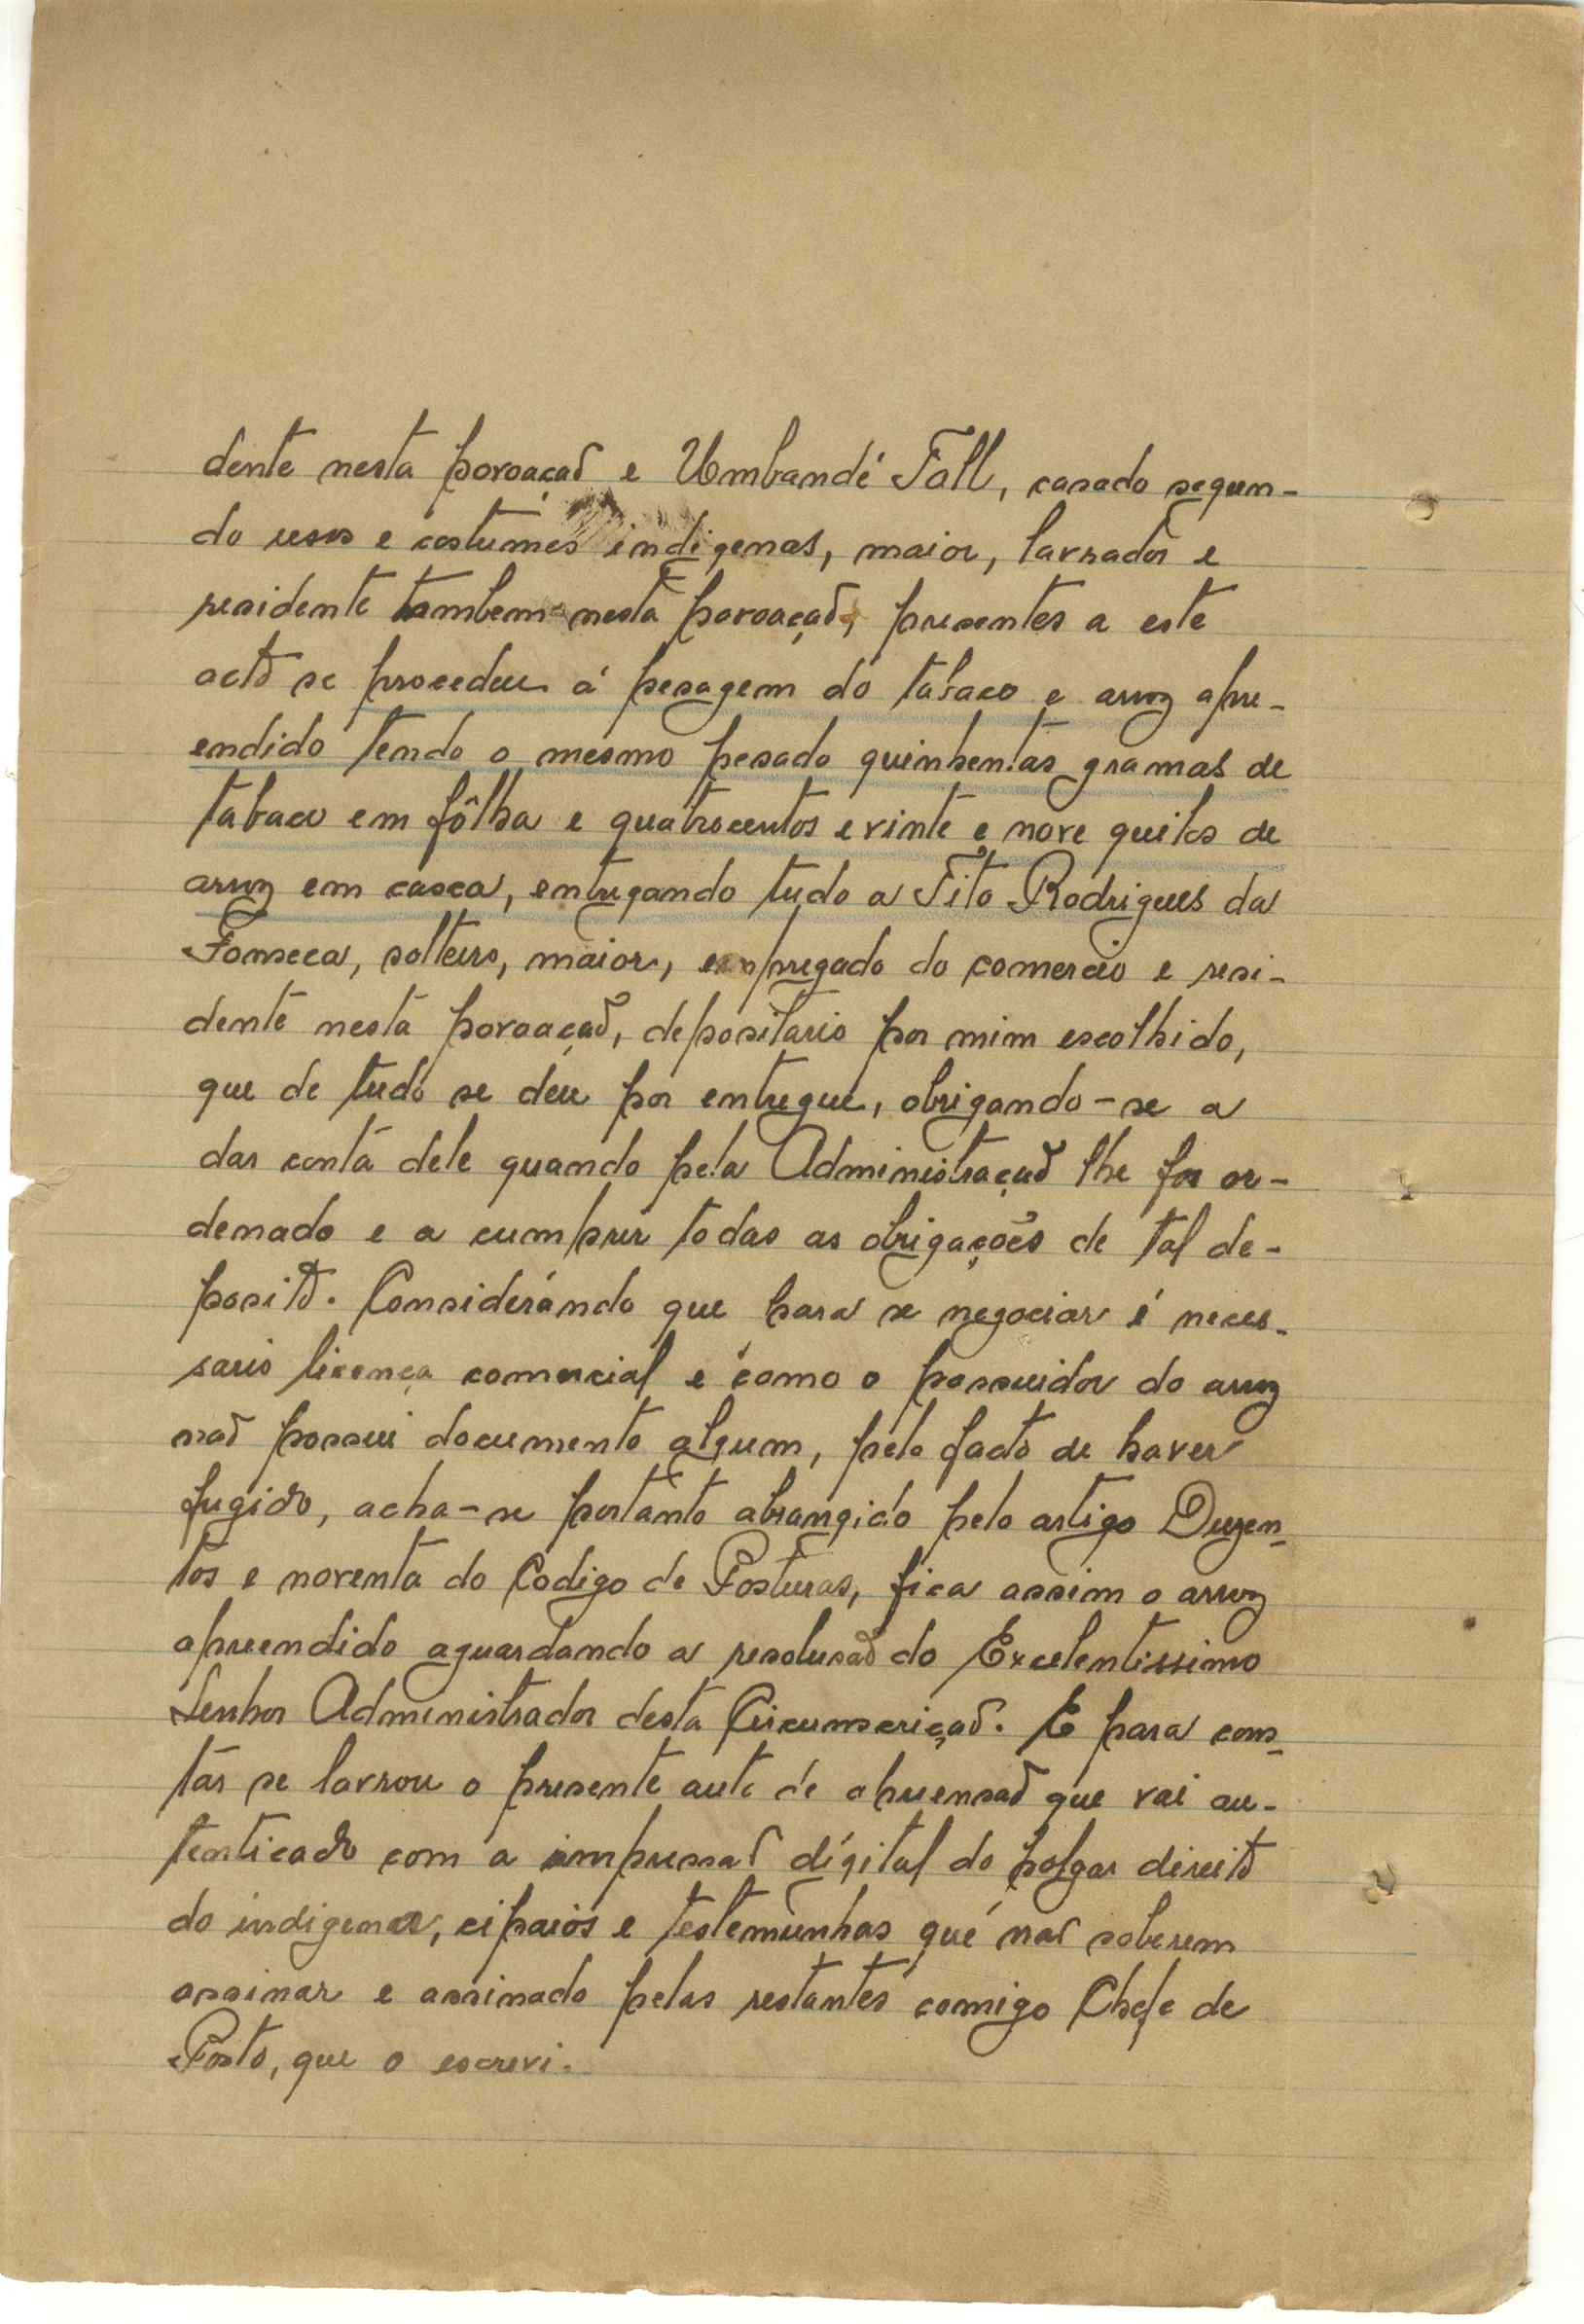 dente nesta povoação e Umbandé Fall, casado segun-
do usos e costumes indigenas, maior, lavrador e
residente tambem nesta povoação, presentes a este
acto se procedeu á pesagem do tabaco e arroz apre-
endido tendo o mesmo pesado quinhentas gramas de
tabaco em fôlha e quatrocentos e vinte e nove quilos de
arroz em casca, entregando tudo a Tito Rodrigues da
Fonseca, solteiro, maior, empregado do comercio e resi-
dente nesta povoação, depositario por mim escolhido,
que de tudo se deu por entregue, obrigando-se a
dar conta dele quando pela Administração lhe for or-
denado e a cumprir todas as obrigações de tal de-
posito. Considerando que para se negociar é neces-
sario licença comercial e como o possuidor do arroz
não possui documento algum, pelo facto de haver
fugido, acha-se portanto abrangido pelo artigo Duzen-
tos e noventa do Codigo de Posturas, fica assim o arroz
apreendido aguardando a resolusão do Excelentissimo
Senhor Administrador desta Circumscrição. E para cons-
tar se lavrou o presente auto de apreensão que vai au-
tenticado com a impressão digital do polgar direito
do indigena, cipaios e testemunhas que não soberem
assinar e assinado pelas restantes comigo Chefe de
Posto, que o escrevi.